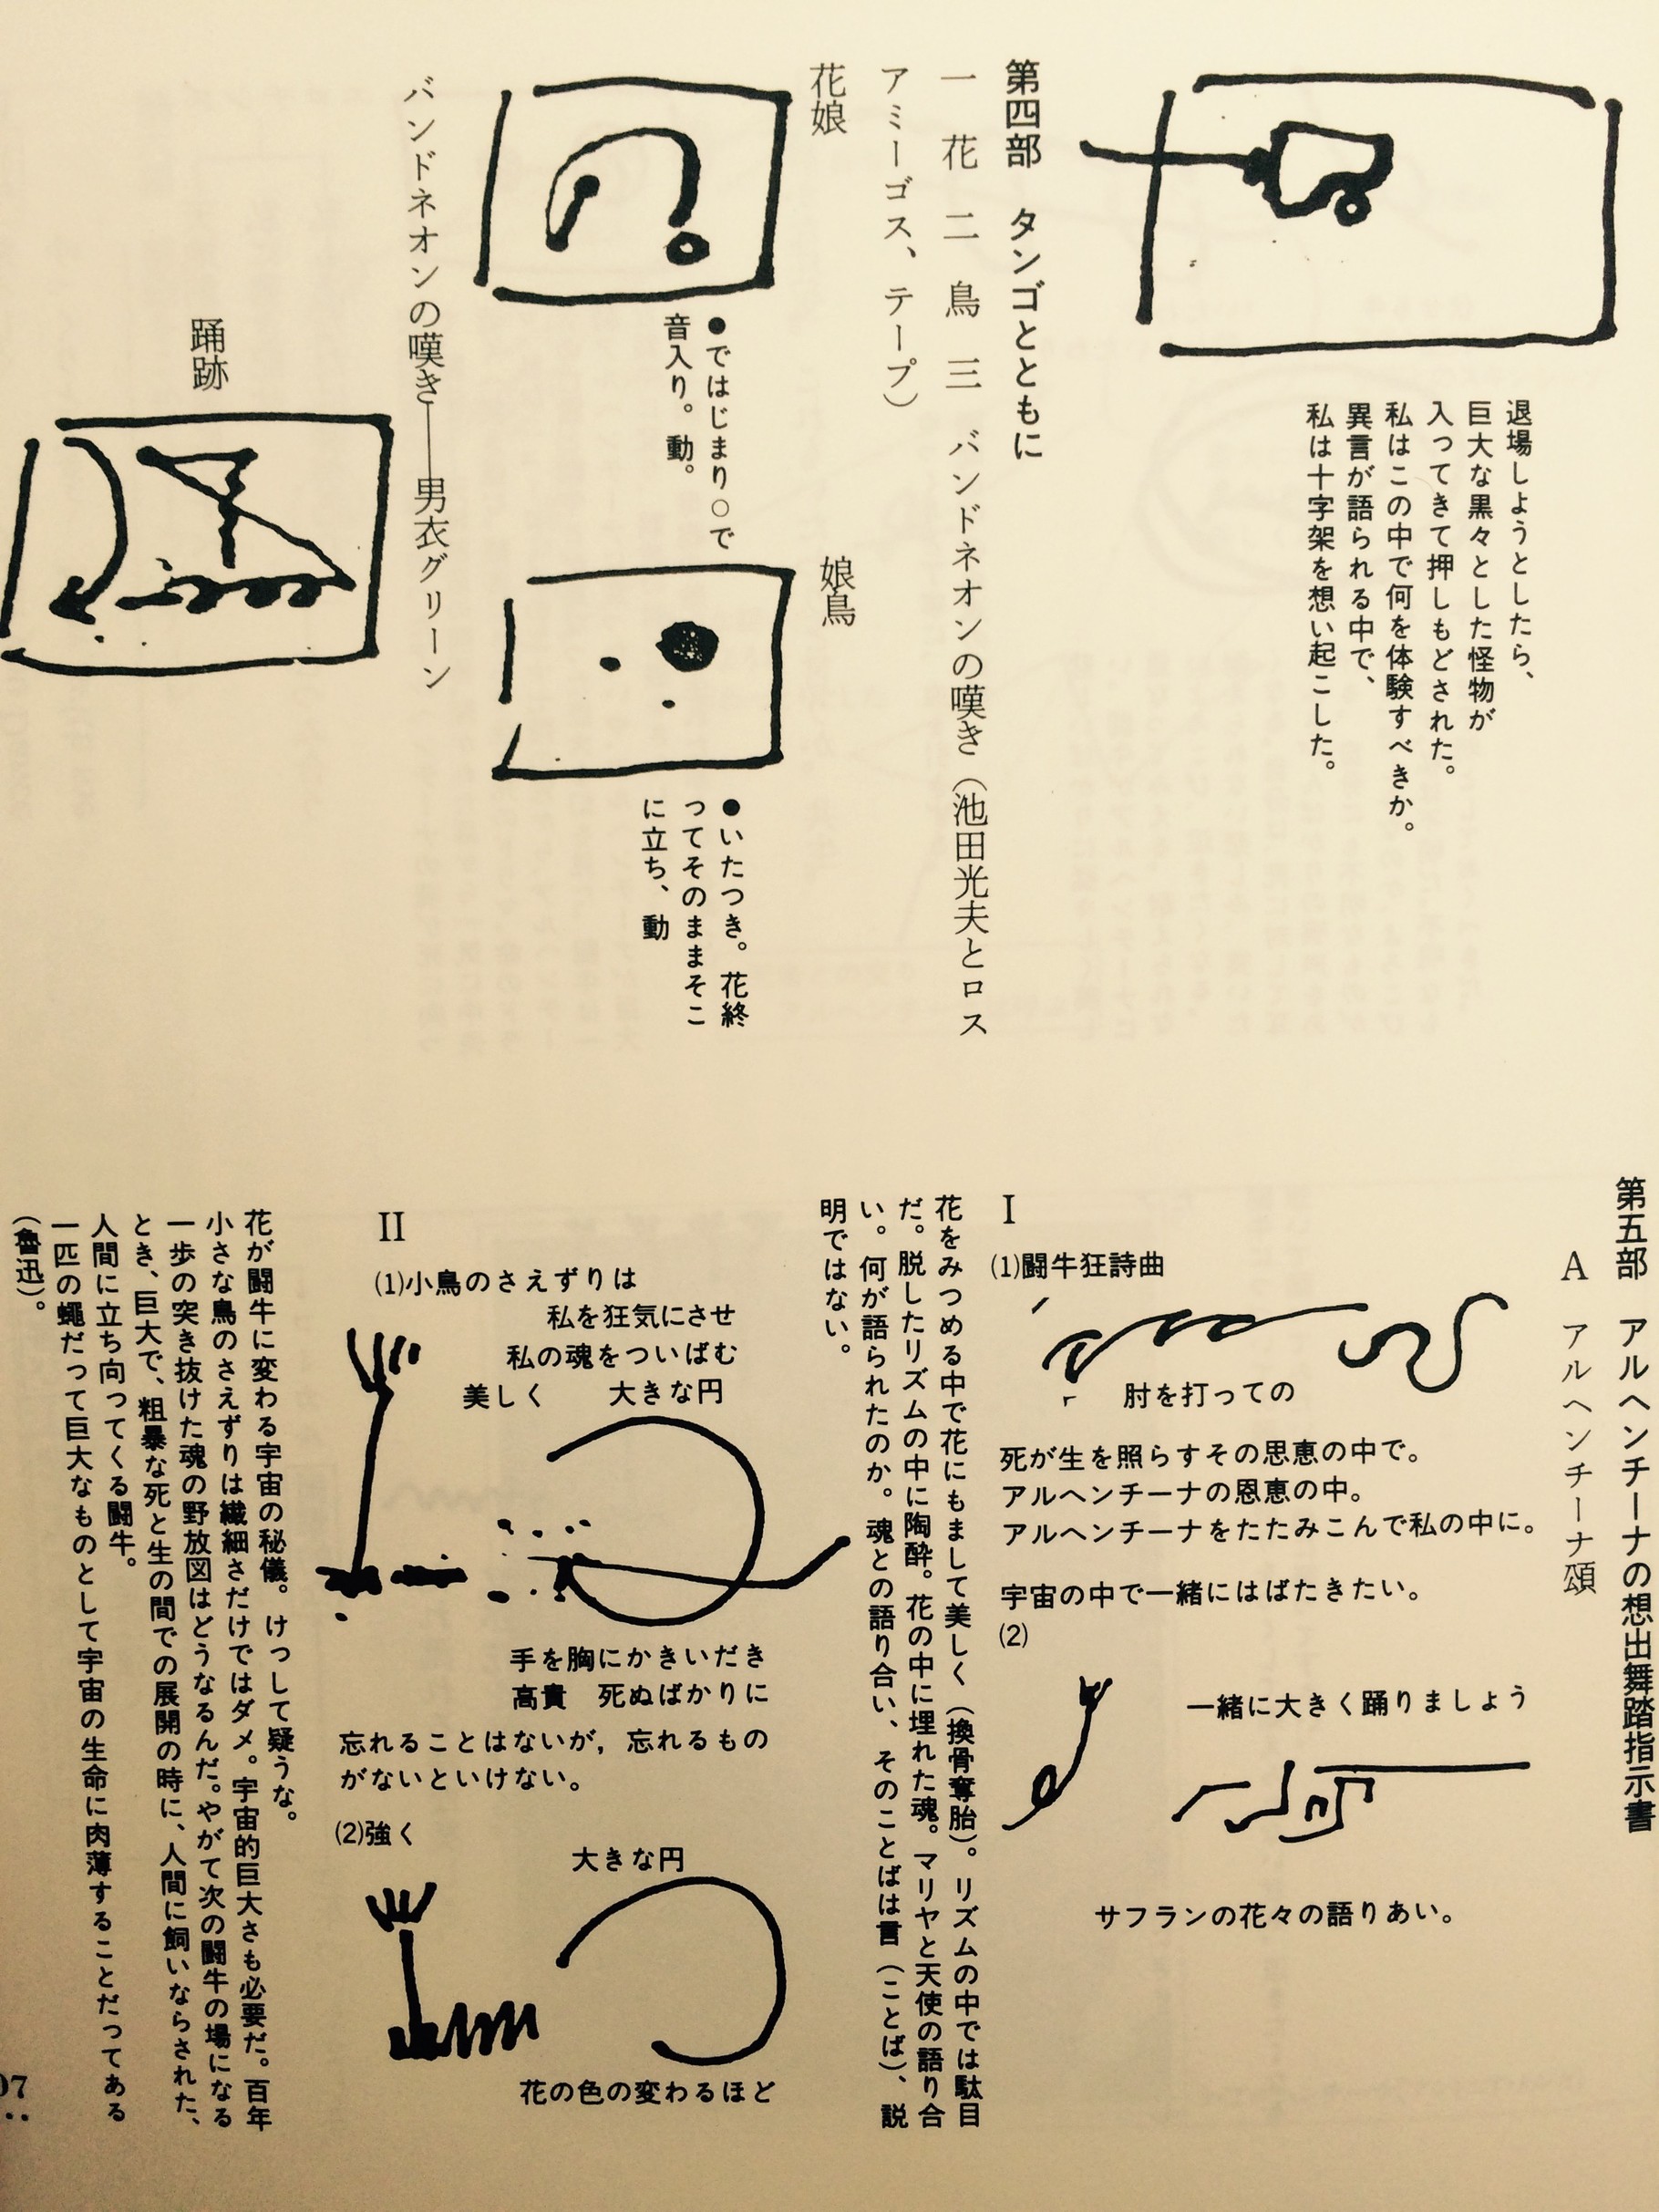 退場しようとしたら、
巨大な黒々とした怪物が
入ってきて押しもどされた。
私はこの中で何を体験すべきか。
異言が語られる中で、
私は十字架を想い起こした。
第四部　タンゴとともに
一　花　二　鳥　三　バンドネオンの嘆き（池田光夫とロス
アミーゴス、テープ）
花娘
●ではじまり○で
音入り。動。
娘鳥
●いたつき。花終
ってそのままそこ
に立ち、動
バンドネオンの嘆き──男衣グリーン
踊跡
第五部　アルヘンチーナの想出舞踏指示書
A　アルヘンチーナ頌
I
(1)闘牛狂詩曲
肘を打っての
死が生を照らすその思恵の中で。
アルヘンチーナの恩恵の中。
アルヘンチーナをたたみこんで私の中に。
宇宙の中で一緒にはばたきたい。
(2)
一緒に大きく踊りましょう
サフランの花々の語りあい。
花をみつめる中で花にもまして美しく（換骨奪胎）。リズムの中では駄目
だ。脱したリズムの中に陶酔。花の中に埋れた魂。マリヤと天使の語り合
い。何が語られたのか。魂との語り合い、そのことばは言（ことば）、説
明ではない。
II
(1)小鳥のさえずりは
私を狂気にさせ
私の魂をついばむ
美しく　大きな円
手を胸にかきいだき
高貴　死ぬばかりに
忘れることはないが，忘れるもの
がないといけない。
(2)強く
大きな円
花の色の変わるほど
花が闘牛に変わる宇宙の秘儀。けっして疑うな。
小さな鳥のさえずりは繊細さだけではダメ。宇宙的巨大さも必要だ。百年
一歩の突き抜けた魂の野放図はどうなるんだ。やがて次の闘牛の場になる
とき、巨大で、粗暴な死と生の間での展開の時に、人間に飼いならされた、
人間に立ち向ってくる闘牛。
一匹の蠅だって巨大なものとして宇宙の生命に肉薄することだってある
（魯迅）。
07